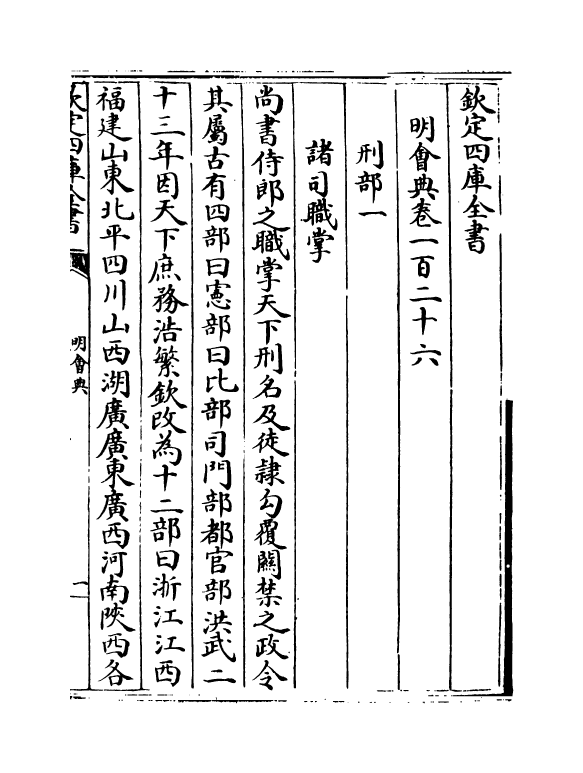 欽定四庫全書
明會典卷一百二十六
刑部一
諸司職掌
尚書侍郎之職掌天下刑名及徒隷勾覆關禁之政令
其屬古有四部曰憲部曰比部司門部都官部洪武二
十三年因天下庶務浩繁欽改為十二部曰浙江江西
福建山東北平四川山西湖廣廣東廣西河南陜西各
欽定四庫全書
明會典
一